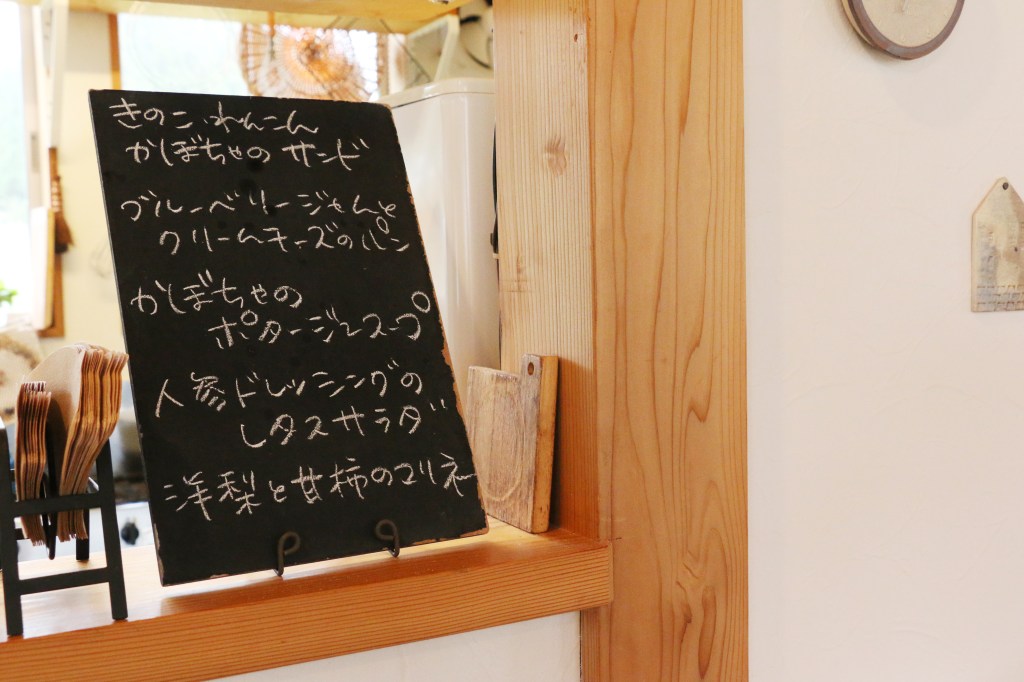 きのこ、れんこん
かぼちゃの サンド
ブルーベリージャムと
クリームチーズのパン
かぼちゃの
ポタージュスープ
人参ドレッシングの
レタスサラダ
洋梨と甘柿のマリネ